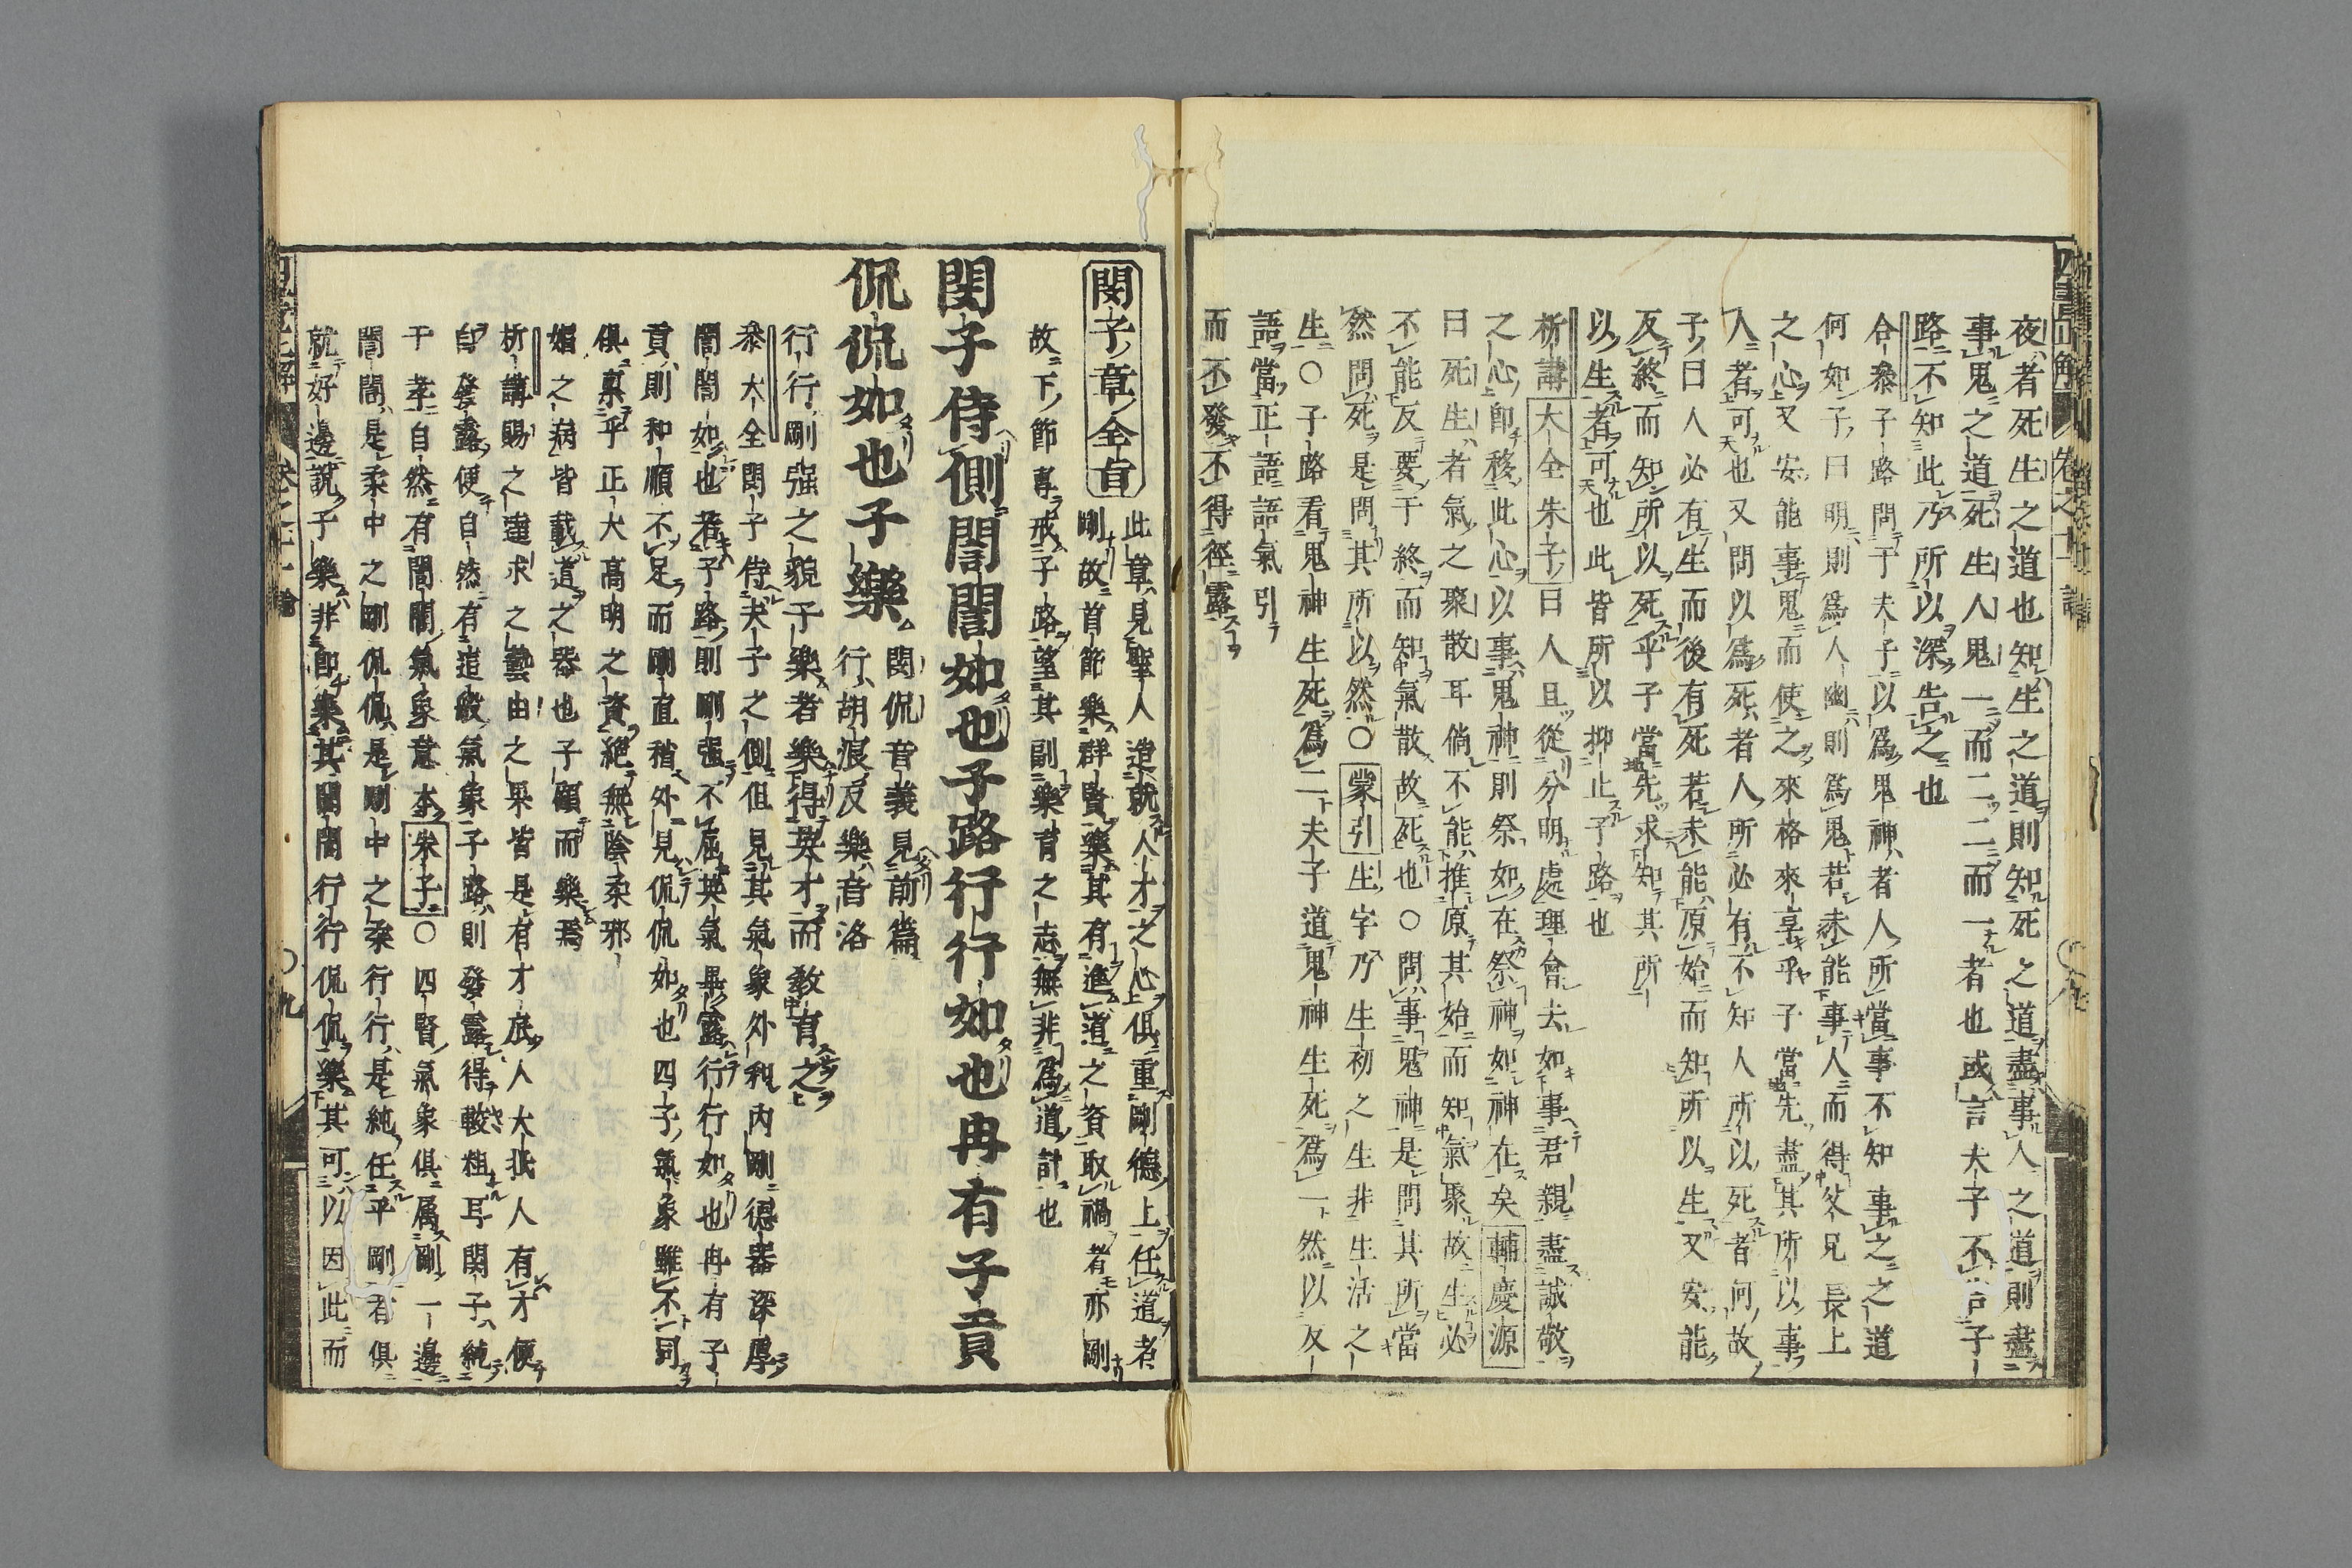 夜者死生之道也知生之道則知死之道盡事人之道則盡
事鬼之道死生人鬼一而二二而一者也或言夫子不告子
路不知此乃所以深告之也
合參子路問于夫子以爲鬼神者人所當事不知事之之道
何如子曰明則爲人幽則爲鬼若未能事人而得父兄長上
之心又安能事鬼而使之來格來享乎子當先盡其所以事
人者可也又問以爲死者人所必有不知人所以死者何故
子曰人必有生而後有死若未能原始而知所以生又安能
反終而知所以死乎子當先求知其所
以生者可也此皆所以抑止子路也
析講大全朱子曰人且從分明處理會去如事君親盡誠敬
之心即移此心以事鬼神則祭如在祭神如神在矣輔慶源
曰死生者氣之聚散耳倘不能推原其始而知氣聚故生必
不能反要于終而知氣散故死也○問事鬼神是問其所當
然問死是問其所以然○蒙引生字乃生初之生非生活之
生○子路看鬼神生死爲二夫子道鬼神生死爲一然以反
語當正語語氣引
而不發不得徑露
閔子章全旨
此章見聖人造就人才之心俱重剛德上任道者
剛故首節樂群賢樂其有進道之資取禍者亦剛
故下節專戒子路望其副樂育之志無非爲道計也
閔子侍側誾誾如也子路行行如也冉有子貢
侃侃如也子樂
閔侃音義見前篇
行胡浪反樂音洛
行行剛强之貌子樂者樂得英才而教育之
參大全閔子侍夫子之側但見其氣象外和内剛德器深厚
誾誾如也者子路則剛强不屈英氣畢露行行如也冉有子
貢則和順不足而剛直稍外見侃侃如也四子氣象雖不同
俱稟乎正大高明之資絶無陰柔邪
媚之病皆載道之器也子顧而樂焉
析講賜之達求之藝由之果皆是有才底人大抵人有才便
自發露便自然有這般氣象子路則發露得較粗耳閔子純
于孝自然有誾誾氣象意本朱子○四賢氣象俱属剛一邊
誾誾是柔中之剛侃侃是剛中之柔行行是純任乎剛者俱
就好邊說子樂非即樂其誾誾行行侃侃樂其可以因此而